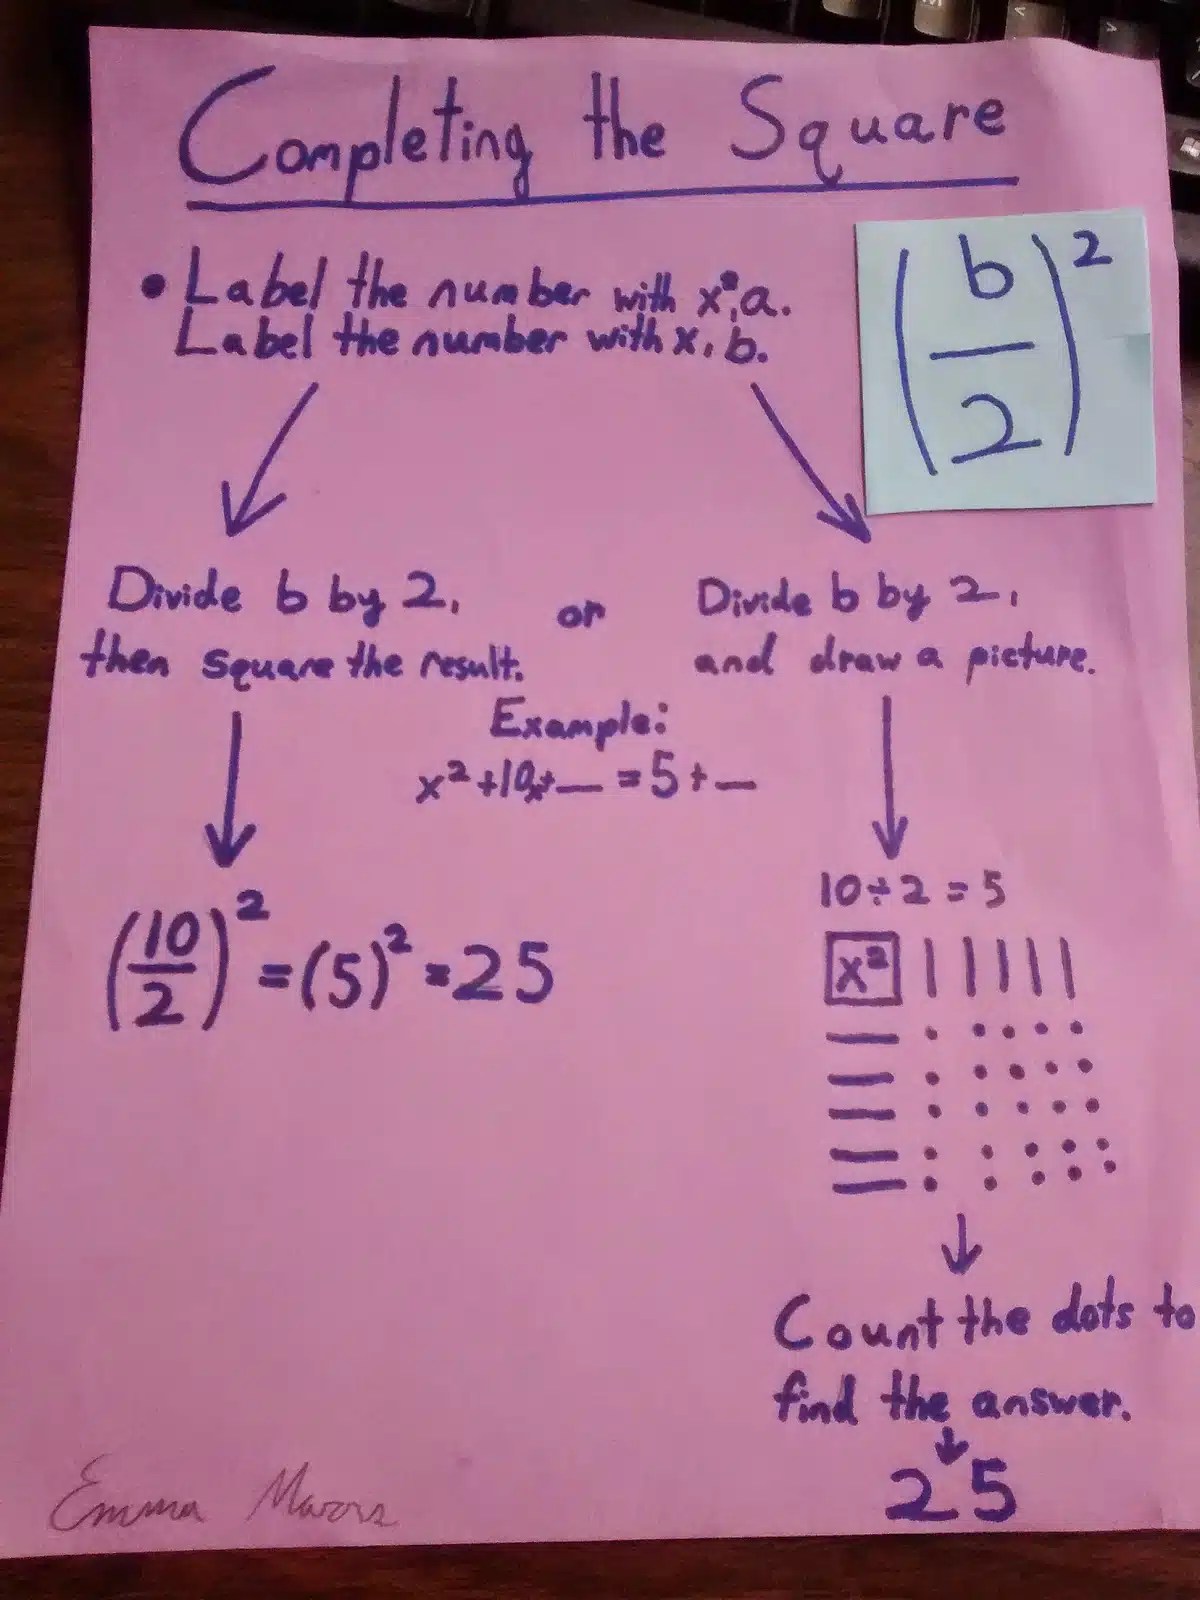 Completing the Square
• Label the number with x², a.
Label the number with x, b.
(b/2)²
Divide b by 2,
then square the result.
or
Divide b by 2,
and draw a picture.
Example:
x²+10x+__ = 5+__
(10/2)² = (5)² = 25
10÷2 = 5
x²
Count the dots to
find the answer.
25
Emma